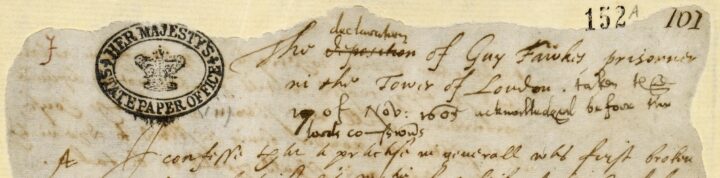 152A 101
HER MAJESTY'S STATE PAPER OFFICE
declaration
The deposition of Guy Fawkes prisonner
in the Tower of London. taken the
17 of Nov: 1605 acknowledged before the
lords comissionrs
A I confesse that a practise in generall was first broken